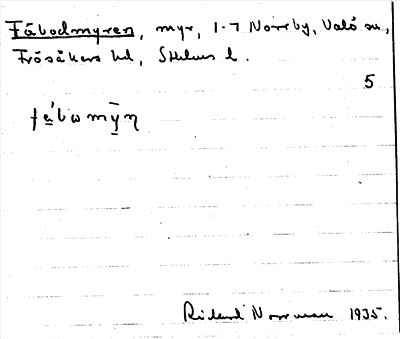 Fäbodmyren, myr, 1-7 Norrby, Valö sn,
Frösåkers hd, Sthlms l.
5
fä́bωmȳn
Rickard Norrman 1935.